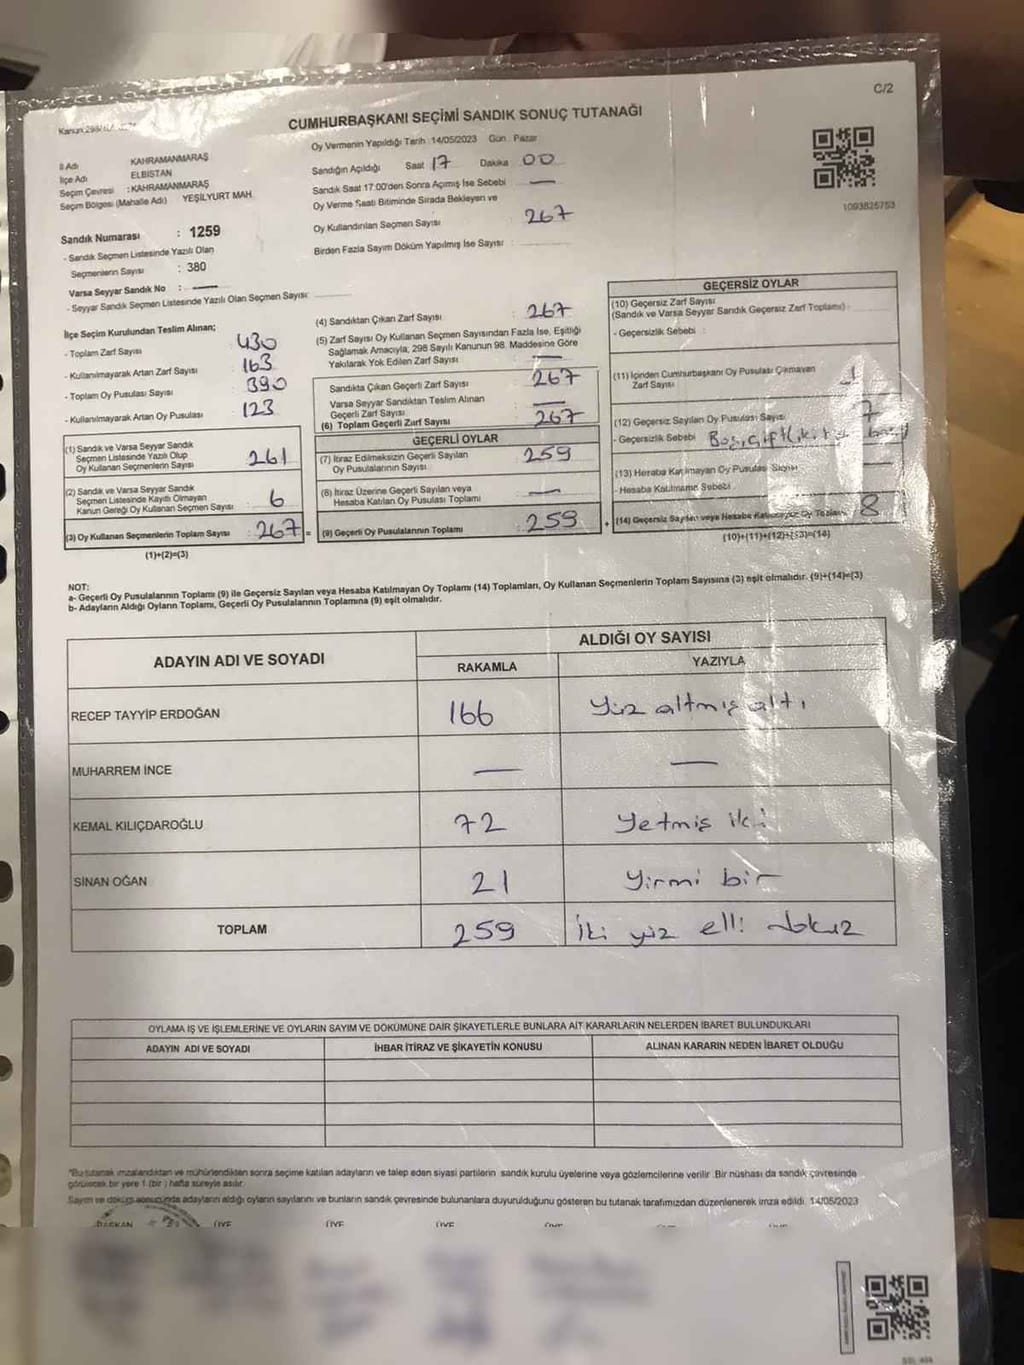 C/2
CUMHURBAŞKANI SEÇİMİ SANDIK SONUÇ TUTANAĞI
İl Adı KAHRAMANMARAŞ
İlçe Adı ELBİSTAN
Seçim Çevresi :KAHRAMANMARAŞ
Seçim Bölgesi (Mahalle Adı) YEŞİLYURT MAH.
Sandık Numarası : 1259
- Sandık Seçmen Listesinde Yazılı Olan
Seçmenlerin Sayısı : 380
Varsa Seyyar Sandık No : —
- Seyyar Sandık Seçmen Listesinde Yazılı Olan Seçmen Sayısı:
Oy Vermenin Yapıldığı Tarih : 14/05/2023 Gün : Pazar
Sandığın Açıldığı Saat 17 Dakika 00
Sandık Saat 17:00'den Sonra Açımış İse Sebebi —
Oy Verme Saati Bitiminde Sırada Bekleyen ve
Oy Kullandırılan Seçmen Sayısı 267
Birden Fazla Sayım Döküm Yapılmış İse Sayısı :
1093825753
İlçe Seçim Kurulundan Teslim Alınan;
- Toplam Zarf Sayısı 430
- Kullanılmayarak Artan Zarf Sayısı 163
- Toplam Oy Pusulası Sayısı 390
- Kullanılmayarak Artan Oy Pusulası 123
(1) Sandık ve Varsa Seyyar Sandık
Seçmen Listesinde Yazılı Olup
Oy Kullanan Seçmenlerin Sayısı 261
(2) Sandık ve Varsa Seyyar Sandık
Seçmen Listesinde Kayıtlı Olmayan
Kanun Gereği Oy Kullanan Seçmen Sayısı 6
(3) Oy Kullanan Seçmenlerin Toplam Sayısı : 267 =
(1)+(2)=(3)
(4) Sandıktan Çıkan Zarf Sayısı : 267
(5) Zarf Sayısı Oy Kullanan Seçmen Sayısından Fazla İse, Eşitliği
Sağlamak Amacıyla, 298 Sayılı Kanunun 98. Maddesine Göre
Yakılarak Yok Edilen Zarf Sayısı —
Sandıkta Çıkan Geçerli Zarf Sayısı 267
Varsa Seyyar Sandıktan Teslim Alınan
Geçerli Zarf Sayısı —
(6) Toplam Geçerli Zarf Sayısı 267
GEÇERLİ OYLAR
(7) İtiraz Edilmeksizin Geçerli Sayılan
Oy Pusulalarının Sayısı 259
(8) İtiraz Üzerine Geçerli Sayılan veya
Hesaba Katılan Oy Pusulası Toplamı —
(9) Geçerli Oy Pusulalarının Toplamı : 259 +
GEÇERSİZ OYLAR
(10) Geçersiz Zarf Sayısı
(Sandık ve Varsa Seyyar Sandık Geçersiz Zarf Toplamı)
- Geçersizlik Sebebi :
(11) İçinden Cumhurbaşkanı Oy Pusulası Çıkmayan
Zarf Sayısı 1
(12) Geçersiz Sayılan Oy Pusulası Sayısı 7
- Geçersizlik Sebebi
(13) Hesaba Katılmayan Oy Pusulası Sayısı —
- Hesaba Katılmama Sebebi
(14) Geçersiz Sayılan veya Hesaba Katılmayan Oy Toplamı 8
(10)+(11)+(12)+(13)=(14)
NOT:
a- Geçerli Oy Pusulalarının Toplamı (9) ile Geçersiz Sayılan veya Hesaba Katılmayan Oy Toplamı (14) Toplamları, Oy Kullanan Seçmenlerin Toplam Sayısına (3) eşit olmalıdır. (9)+(14)=(3)
b- Adayların Aldığı Oyların Toplamı, Geçerli Oy Pusulalarının Toplamına (9) eşit olmalıdır.
ADAYIN ADI VE SOYADI
ALDIĞI OY SAYISI
RAKAMLA YAZIYLA
RECEP TAYYİP ERDOĞAN 166 Yüz altmış altı
MUHARREM İNCE — —
KEMAL KILIÇDAROĞLU 72 Yetmiş iki
SİNAN OĞAN 21 Yirmi bir
TOPLAM 259 İki yüz elli dokuz
OYLAMA İŞ VE İŞLEMLERİNE VE OYLARIN SAYIM VE DÖKÜMÜNE DAİR ŞİKAYETLERLE BUNLARA AİT KARARLARIN NELERDEN İBARET BULUNDUKLARI
ADAYIN ADI VE SOYADI İHBAR İTİRAZ VE ŞİKAYETİN KONUSU ALINAN KARARIN NEDEN İBARET OLDUĞU
*Bu tutanak imzalandıktan ve mühürlendikten sonra seçime katılan adayların ve talep eden siyasi partilerin sandık kurulu üyelerine veya gözlemcilerine verilir. Bir nüshası da sandık çevresinde
görülecek bir yere 1 (bir) hafta süreyle asılır.
Sayım ve döküm sonucunda adayların aldığı oyların sayılarını ve bunların sandık çevresinde bulunanlara duyurulduğunu gösteren bu tutanak tarafımızdan düzenlenerek imza edildi. 14/05/2023
BAŞKAN ÜYE ÜYE ÜYE